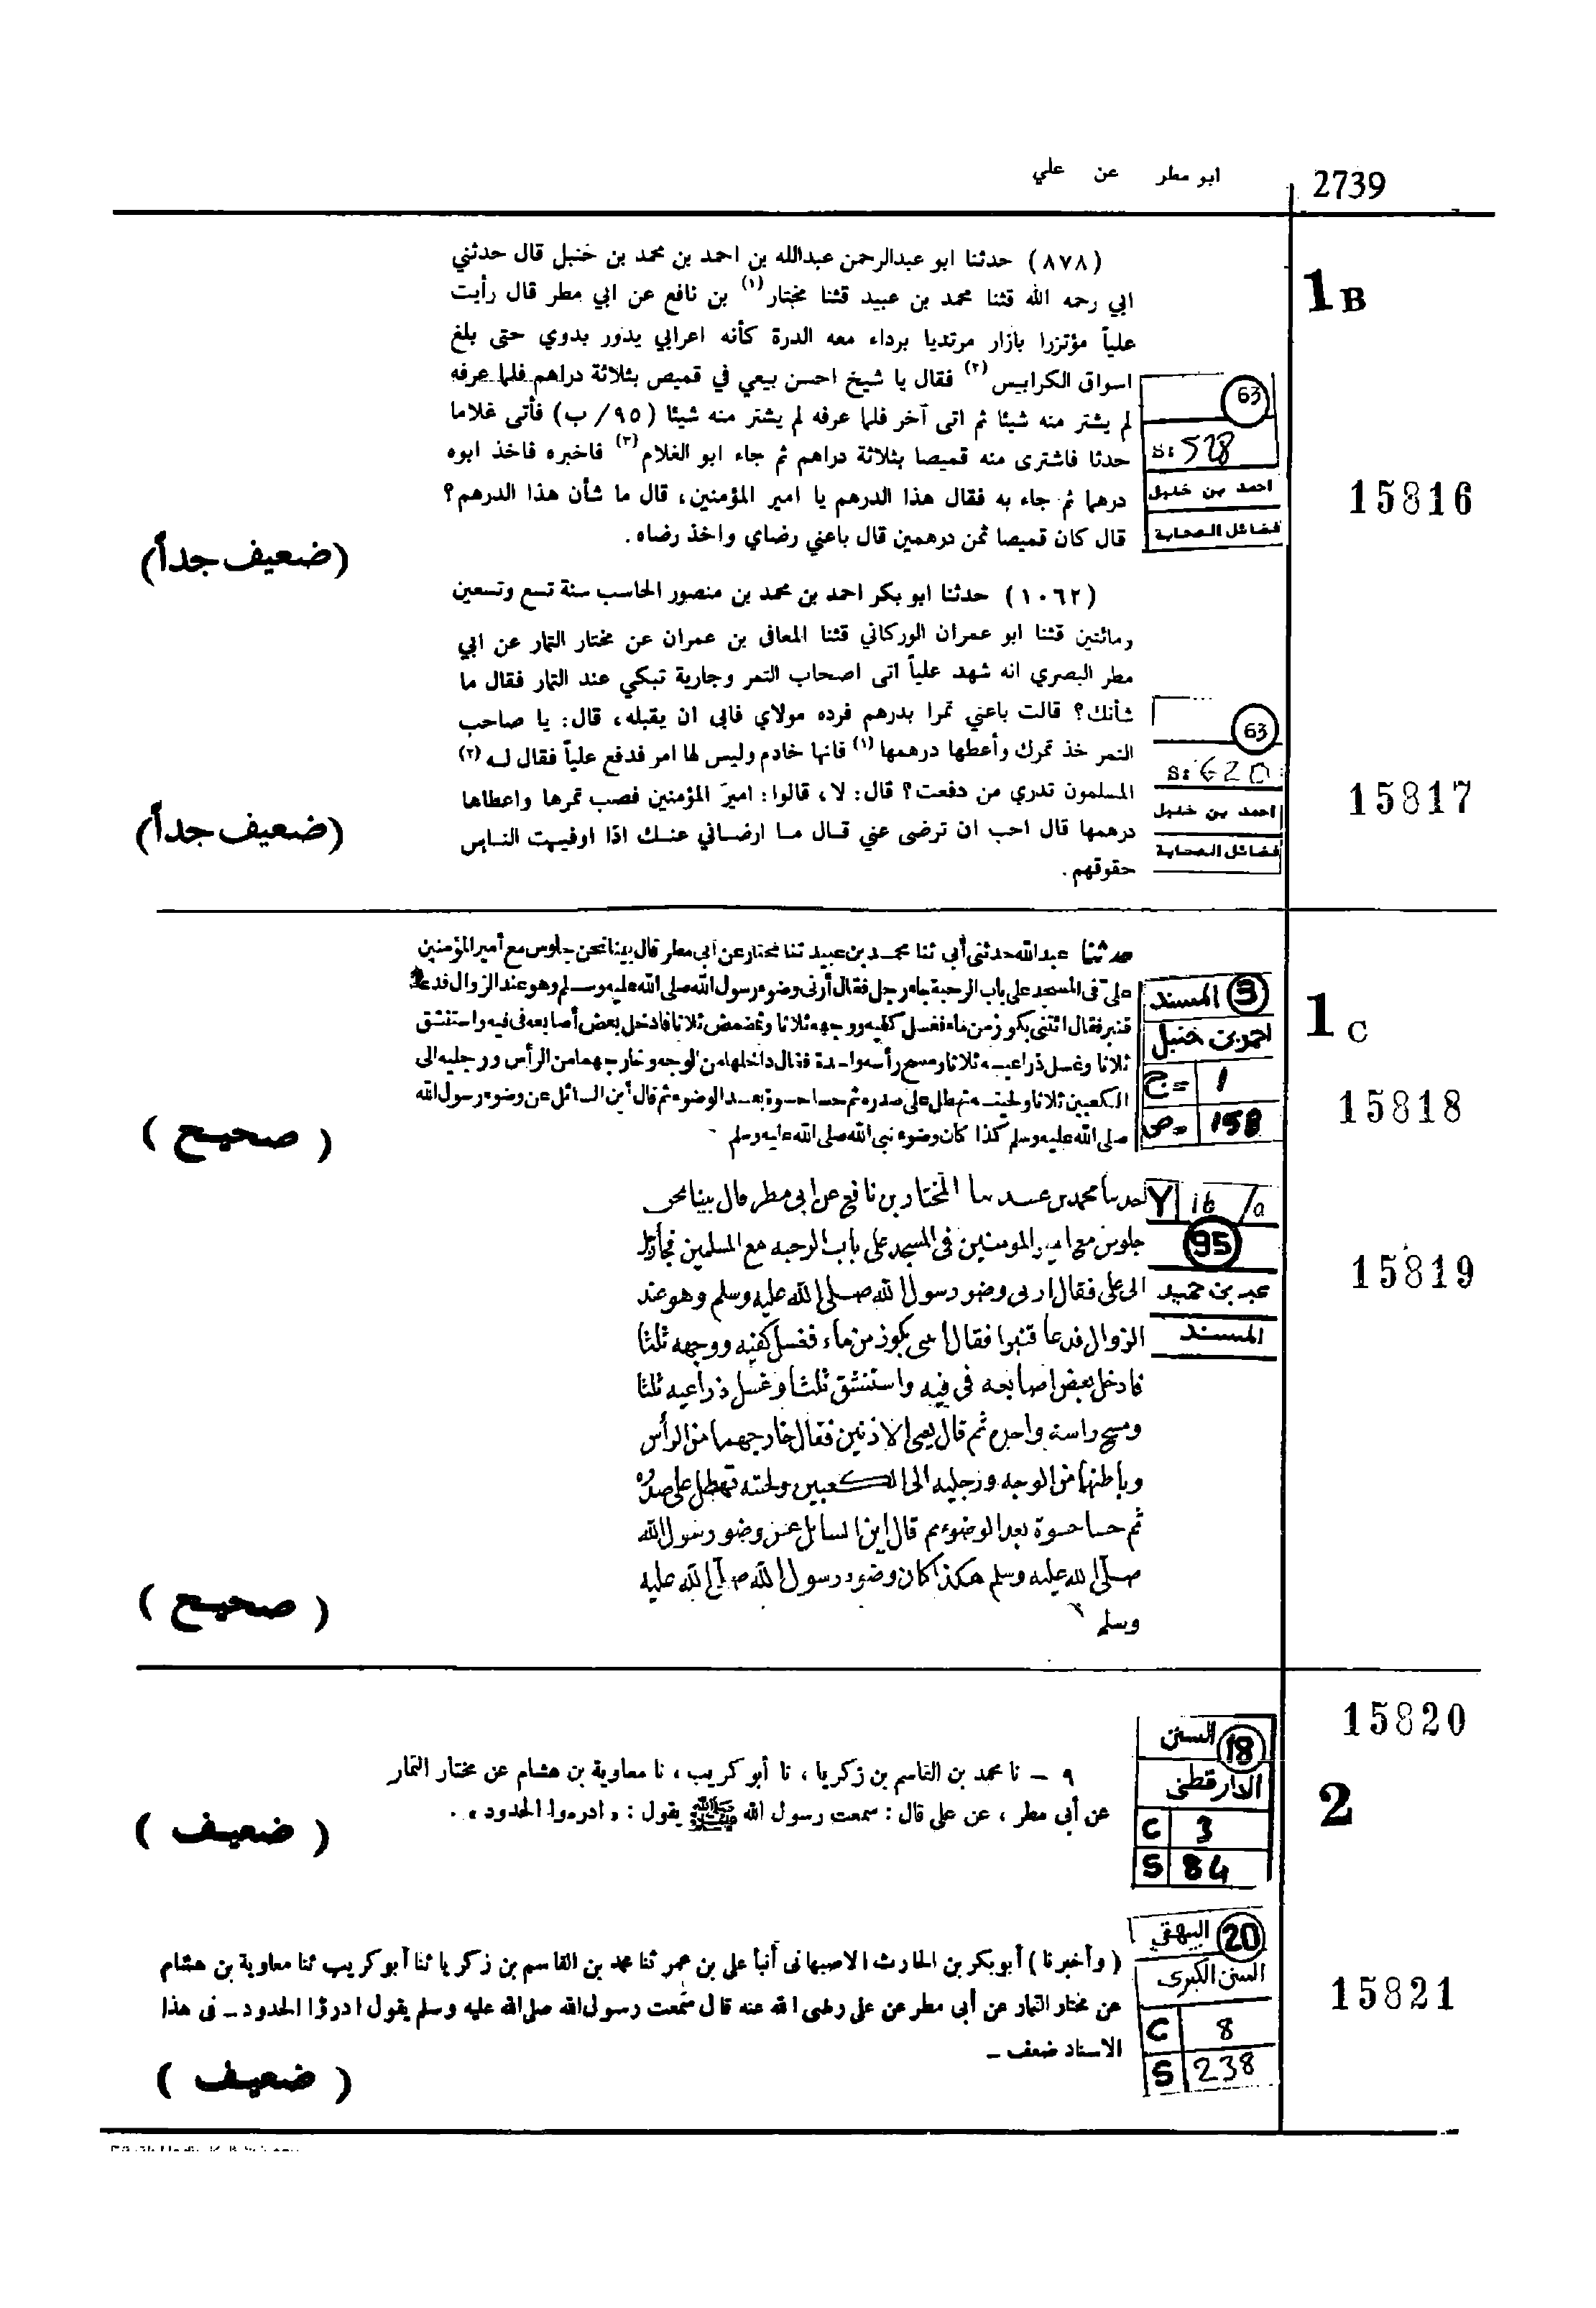 2739
ابو مطر عن علي
1B
(٨٧٨) حدثنا ابو عبدالرحمن عبدالله بن احمد بن محمد بن حنبل قال حدثني
ابي رحمه الله قثنا محمد بن عبيد قثنا مختار(١) بن نافع عن ابي مطر قال رأيت
علياً مؤتزرا بازار مرتديا برداء معه الدرة كأنه اعرابي يدور بدوي حتى بلغ
اسواق الكرابيس(٢) فقال يا شيخ احسن بيعي في قميص بثلاثة دراهم فلما عرفه
لم يشتر منه شيئا ثم اتى آخر فلما عرفه لم يشتر منه شيئا (٩٥/ب) فأتى غلاما
حدثا فاشترى منه قميصا بثلاثة دراهم ثم جاء ابو الغلام(٣) فاخبره فاخذ ابوه
درهما ثم جاء به فقال هذا الدرهم يا امير المؤمنين، قال ما شأن هذا الدرهم؟
قال كان قميصا ثمن درهمين قال باعني رضاي واخذ رضاه.
63
S: 528
احمد بن حنبل
فضائل الصحابة
15816
(ضعيف جداً)
(١٠٦٢) حدثنا ابو بكر احمد بن محمد بن منصور الحاسب سنة تسع وتسعين
ومائتين قثنا ابو عمران الوركاني قثنا المعافى بن عمران عن مختار التمار عن ابي
مطر البصري انه شهد علياً اتى اصحاب التمر وجارية تبكي عند التمار فقال ما
شأنك؟ قالت باعني تمرا بدرهم فرده مولاي فابى ان يقبله، قال: يا صاحب
التمر خذ تمرك وأعطها درهمها(١) فانها خادم وليس لها امر فدفع علياً فقال لـه(٢)
المسلمون تدري من دفعت؟ قال: لا، قالوا: اميرَ المؤمنين فصب تمرها واعطاها
درهمها قال احب ان ترضى عني قـال مـا ارضـاني عنـك اذا اوفيـت النـاس
حقوقهم.
63
S: 620
احمد بن حنبل
فضائل الصحابة
15817
(ضعيف جداً)
1C
حدثنا عبدالله حدثنى أبى ثنا محمد بن عبيد ثنا مختار عن أبى مطر قال بينا نحن جلوس مع أمير المؤمنين
على فى المسجد على باب الرحبة جاء رجل فقال أرنى وضوء رسول الله صلى الله عليه وسلم وهو عند الزوال فدعا
قنبر فقال ائتنى بكوز من ماء فغسل كفيه ووجهه ثلاثا وتمضمض ثلاثا فادخل بعض أصابعه فى فيه واستنشق
ثلاثا وغسل ذراعيه ثلاثا ومسح رأسه واحدة فقال داخلهما من الوجه وخارجهما من الرأس ورجليه الى
الكعبين ثلاثا ولحيته تهطل على صدره ثم حسا حسوة بعد الوضوء ثم قال أين السائل عن وضوء رسول الله
صلى الله عليه وسلم كذا كان وضوء نبى الله صلى الله عليه وسلم
3 المسند
احمد بن حنبل
ج= 1
ص= 158
15818
( صحيـح )
محمد بن المختار بن نافع عن ابى مطر قال بينا نحن
جلوس مع امير المومنين فى المسجد على باب الرحبه مع المسلمين فجا رجل
الى على فقال ارنى وضو رسول الله صلى الله عليه وسلم وهو عند
الزوال فدعا قنبرا فقال بكوز من ماء فغسل كفيه ووجهه ثلثا
فادخل بعض اصابعه فى فيه واستنشق ثلثا وغسل ذراعيه ثلثا
ومسح راسه واحده ثم قال يعنى الاذنين فقال خارجهما من الرأس
وباطنهما من الوجه ورجليه الى الكعبين ولحيته تهطل على صدره
ثم حسا حسوة بعد الوضوء ثم قال اين السايل عن وضو رسول الله
صلى الله عليه وسلم هكذا كان وضوء رسول الله صلى الله عليه
وسلم
95
عبد بن حميد
المسند
15819
( صحيـح )
15820
2
٩ - نا محمد بن القاسم بن زكريا ، نا أبو كريب ، نا معاوية بن هشام عن مختار التمار
عن أبى مطر ، عن على قال : سمعت رسول الله ﷺ يقول : « ادرءوا الحدود » .
18 السنن
الدارقطنى
C 3
S 84
( ضعيـف )
( وأخبرنا ) أبو بكر بن الحارث الاصبهانى أنبأ على بن عمر ثنا محمد بن القاسم بن زكريا ثنا أبو كريب ثنا معاوية بن هشام
عن مختار التمار عن أبى مطر عن على رضى الله عنه قال سمعت رسول الله صلى الله عليه وسلم يقول ادرؤا الحدود - فى هذا
الاسناد ضعف -
20 البيهقي
السنن الكبرى
C 8
S 238
15821
( ضعيـف )